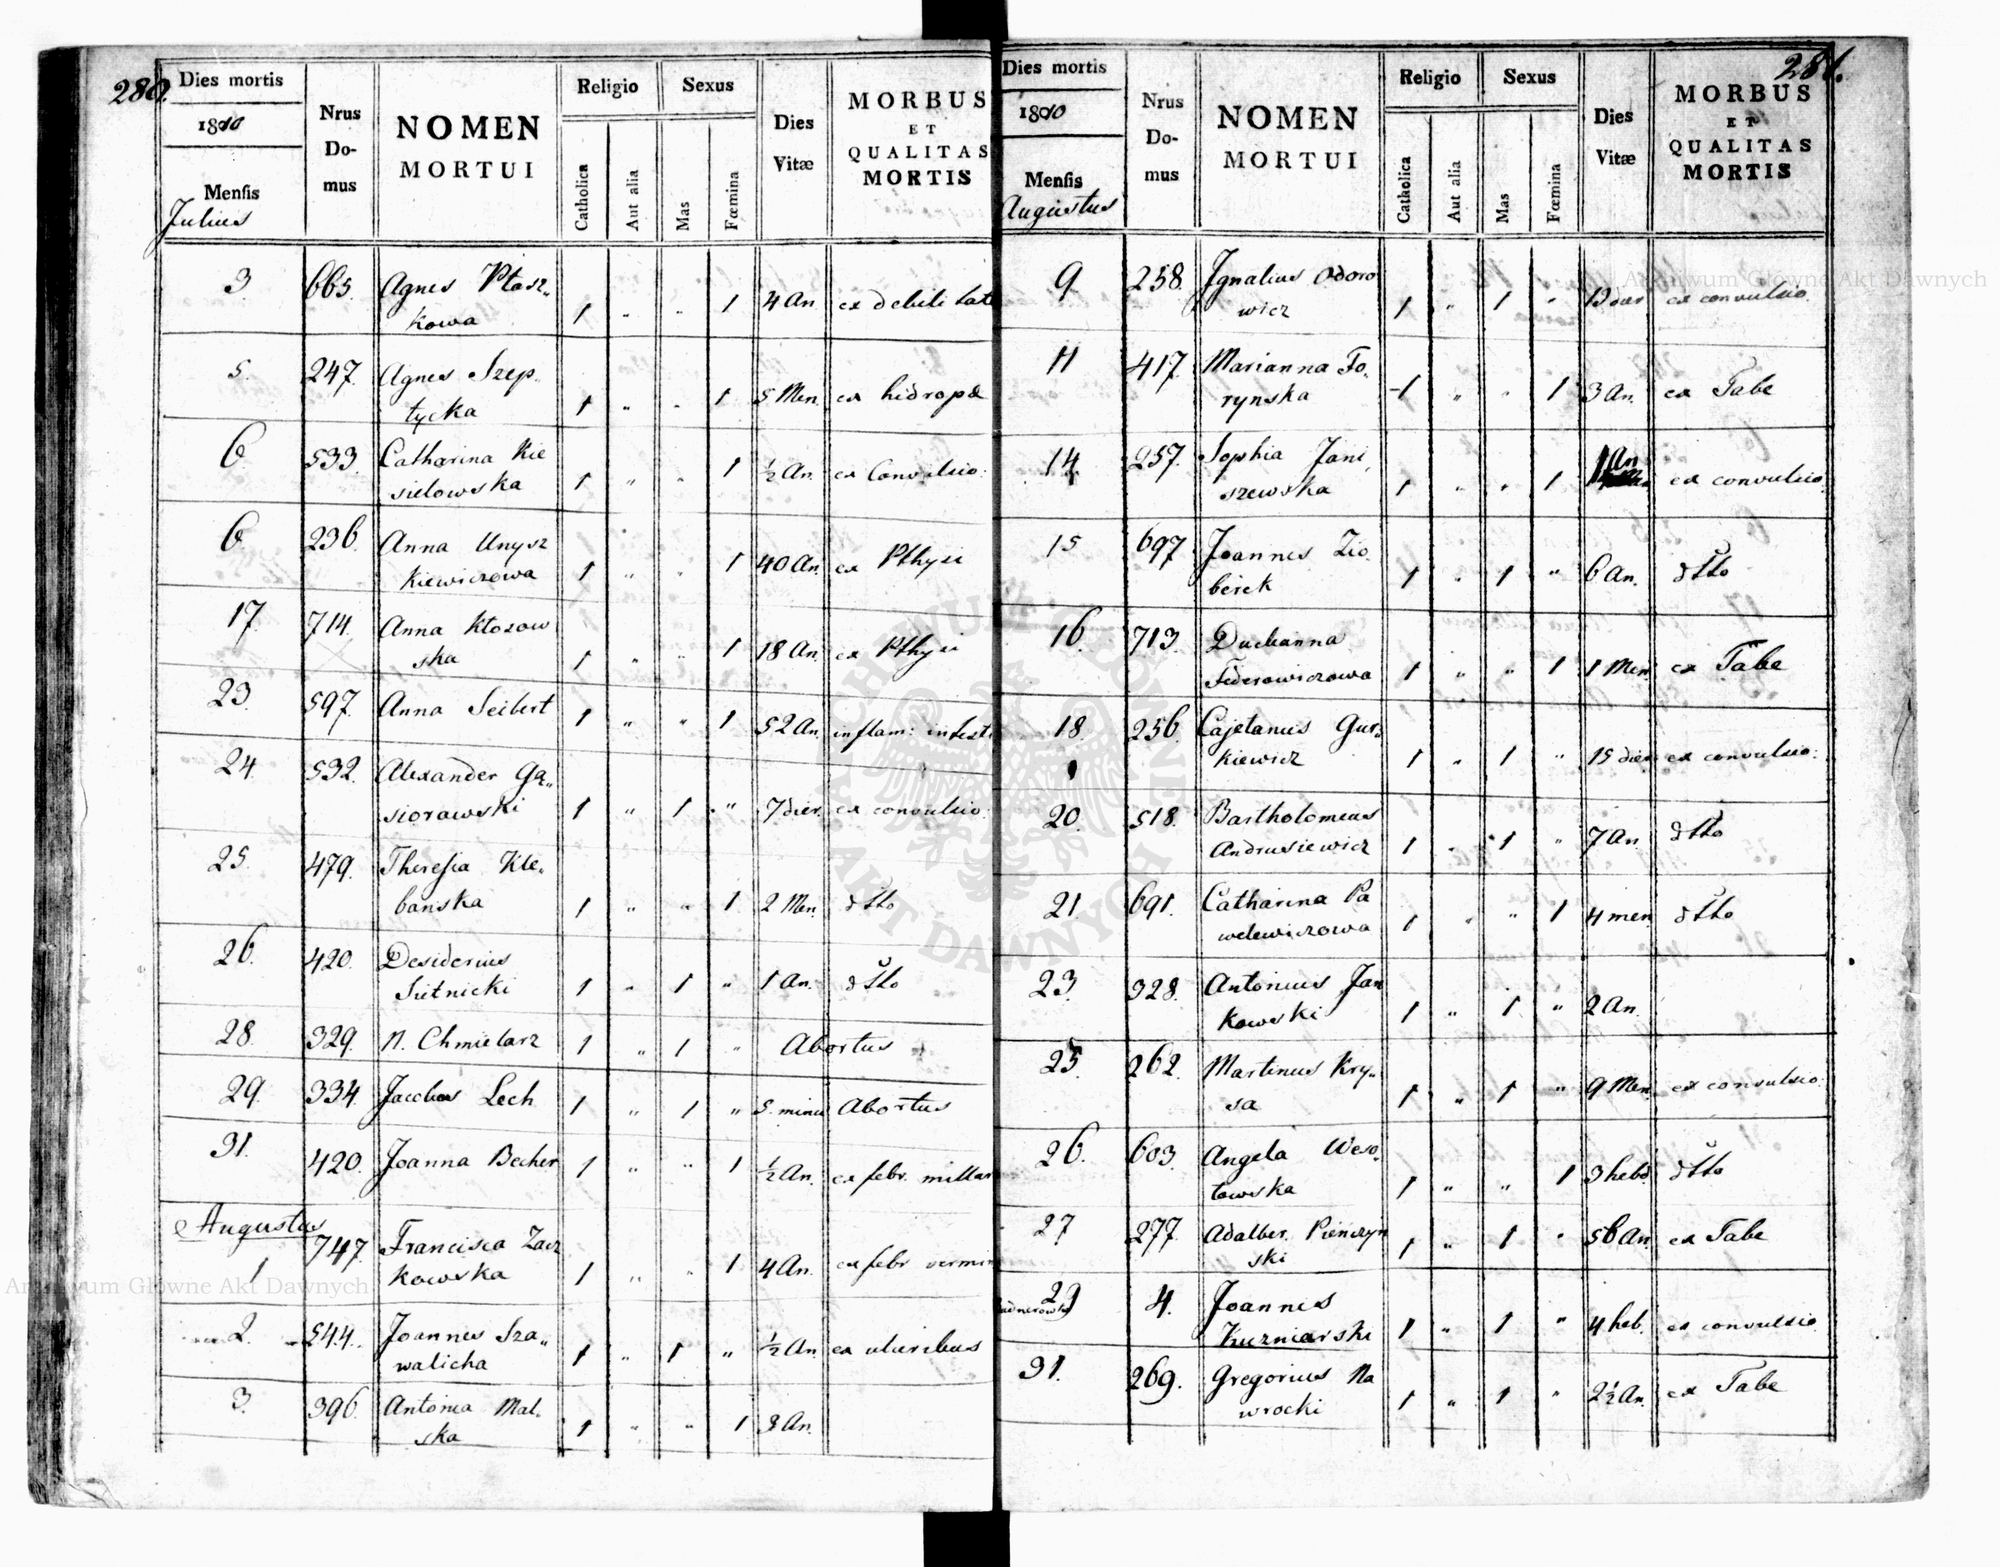 280.
Dies mortis
1810
Mensis
Julius
Nrus
Do-
mus
NOMEN
MORTUI
Religio
Catholica
Aut alia
Sexus
Mas
Fœmina
Dies
Vitæ
MORBUS
ET
QUALITAS
MORTIS
3 665. Agnes Ptasz„
kowa 1 „ „ 1 4 An. ex debilitat
5. 247. Agnes Szep„
tycka 1 „ „ 1 5 Men. ex hidrope
6. 533. Catharina Kie
sielowska 1 „ „ 1 ½ An. ex Convulsio:
6. 236. Anna Unysz
kiewiczowa 1 „ „ 1 40 An. ex Pthysi
17. 714. Anna Kłosow
ska 1 „ „ 1 18 An. ex Pthysi
23. 597. Anna Seibert 1 „ „ 1 52 An. inflam: intest
24. 532. Alexander Gą„
siorowski 1 „ 1 „ 7 dier. ex convulsio.
25. 479. Theresia Kle„
banska 1 „ „ 1 2 Men. dtto
26. 420. Desiderius
Sietnicki 1 „ 1 „ 1 An. dtto
28. 329. N. Chmielarz 1 „ 1 „ Abortus
29. 334. Jacobus Lech 1 „ 1 „ 5. minu Abortus
31. 420. Joanna Becher 1 „ „ 1 ½ An. ex febr. miliar
Augustus
1 747. Francisca Zacz
kowska 1 „ „ 1 4 An. ex febr vermin
2. 544. Joannes Sza„
walicha 1 „ 1 „ ½ An. ex ulceribus
3. 396. Antonia Mal„
ska 1 „ „ 1 3 An.
281.
Dies mortis
1810
Mensis
Augustus
Nrus
Do-
mus
NOMEN
MORTUI
Religio
Catholica
Aut alia
Sexus
Mas
Fœmina
Dies
Vitæ
MORBUS
ET
QUALITAS
MORTIS
9 258. Ignatius Odoro
wicz 1 „ 1 „ 13 dier ex convulsio.
11 417. Marianna To„
rynska 1 „ „ 1 3 An. ex Tabe
14 257. Sophia Jani„
szewska 1 „ „ 1 1 An ex convulsio.
15 697. Joannes Zio„
berek 1 „ 1 „ 6 An. dtto
16. 713. Duchanna
Fiderowiczowa 1 „ „ 1 1 Men ex Tabe
18. 256. Cajetanus Gur„
kiewicz 1 „ 1 „ 15 dier ex convulsio:
20. 518. Bartholomeus
Andrusiewicz 1 „ 1 „ 7 An dtto
21. 691. Catharina Pa
welewiczowa 1 „ „ 1 4 men dtto
23. 328. Antonius Jan
kowski 1 „ 1 „ 2 An.
25. 262. Martinus Kry„
sa 1 „ 1 „ 9 Men. ex convulsio:
26. 603. Angela Weso„
łowska 1 „ „ 1 3 hebd. dtto
27 277. Adalber. Pienczyn
ski 1 „ 1 „ 56 An. ex Tabe
29 4. Joannes
Kuzniarski 1 „ 1 „ 4 heb. ex convulsio
31. 269. Gregorius Na
wrocki 1 „ 1 „ 2½ An. ex Tabe
Archiwum Główne Akt Dawnych
Archiwum Główne Akt Dawnych
ARCHIWUM GŁÓWNE AKT DAWNYCH